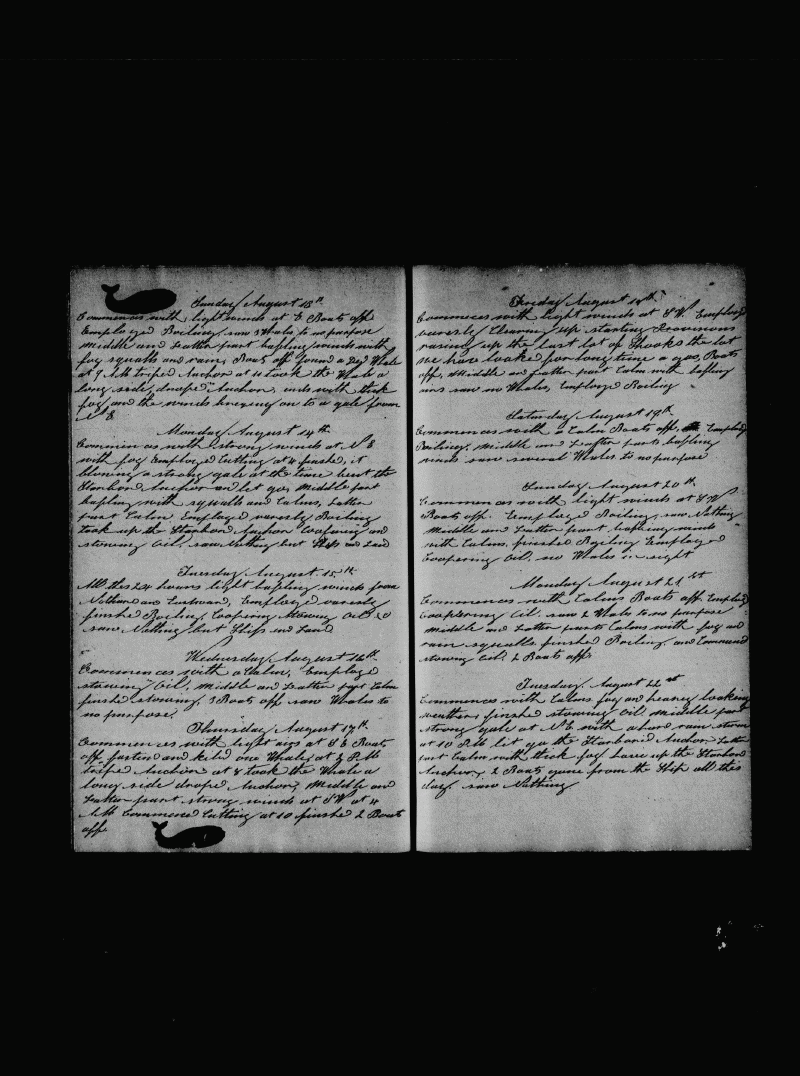 Sunday August 13th
Commences with light winds at E Boats off
Employed Boiling saw Whales to no purpose
Middle and Latter part bafling winds with
fog squalls and rain, Boats off found a Dry Whale
at 7 AM Anchor at 11 took the Whale a
long side, drope Anchor, ends with thick
fog and the winds to a gale from
N E
Monday August 14th
Commences with strong winds at N E
with fog Employed Cutting at 4 finshed, it
blowing a strong gale at the time bent the
Starbord Anchor and let go, Middle part
bafling with squalls and Calms, Latter
part Calm Employed varesly Boiling
took up the Starbord Anchor Coopering and
stowing Oil, saw Nothing but Ships and Land
Tuesday August 15th
All this 24 hours light bafling winds from
Nothard and Eastward, Employed varesly
finshed Boiling Coopering Stowing Oil
saw Nothing but Ships and Land
Wednesday August 16th
Commences with a Calm, Employed
stowing Oil, Middle and Latter part Calm
finshed stowing, 3 Boats off saw Whales to
no purpose,
Thursday August 17th
Commences with light airs at S E Boats
off fasted and kild one Whale, at 7 P.M
Anchor at 8 took the Whale a
long side drope Anchor, Middle and
Latter part strong winds at S W at 4
A.M Commenced Cutting at 10 finshed 2 Boats
off
Friday August 18th
Commences with light winds at S W Employed
varesly Clearing up starting Provisions
rasing up the last lot of Shooks the lot
we have looked for long time a go, Boats
off, Middle and Latter part Calm with bafling
airs saw no Whales, Employed Boiling
Saturday August 19th
Commences with a Calm Boats off, Employed
Boiling, Middle and Latter parts bafling
winds saw several Whales to no purpose
Sunday August 20th
Commences with light winds at S W
Boats off. Employed Boiling, saw Nothing
Middle and Latter part bafling winds
with Calms, finshed Boiling Employed
Coopering Oil, no Whales in sight
Monday August 21st
Commences with Calms Boats off Employed
Coopering Oil. saw 2 Whales to no purpose
Middle and Latter parts Calms with fog and
rain squalls finshed Boiling, and Commenced
stowing Oil. 2 Boats off
Tuesday August 22st
Commences with Calms fog and heavy looking
weather, finshed stowing Oil Middle part
strong gale at N E with a hard rain storm
at 10 P.M let go the Starbord Anchor Latter
part Calm with thick fog hove up the Starbord
Anchor, 2 Boats gone from the Ship all this
day saw Nothing